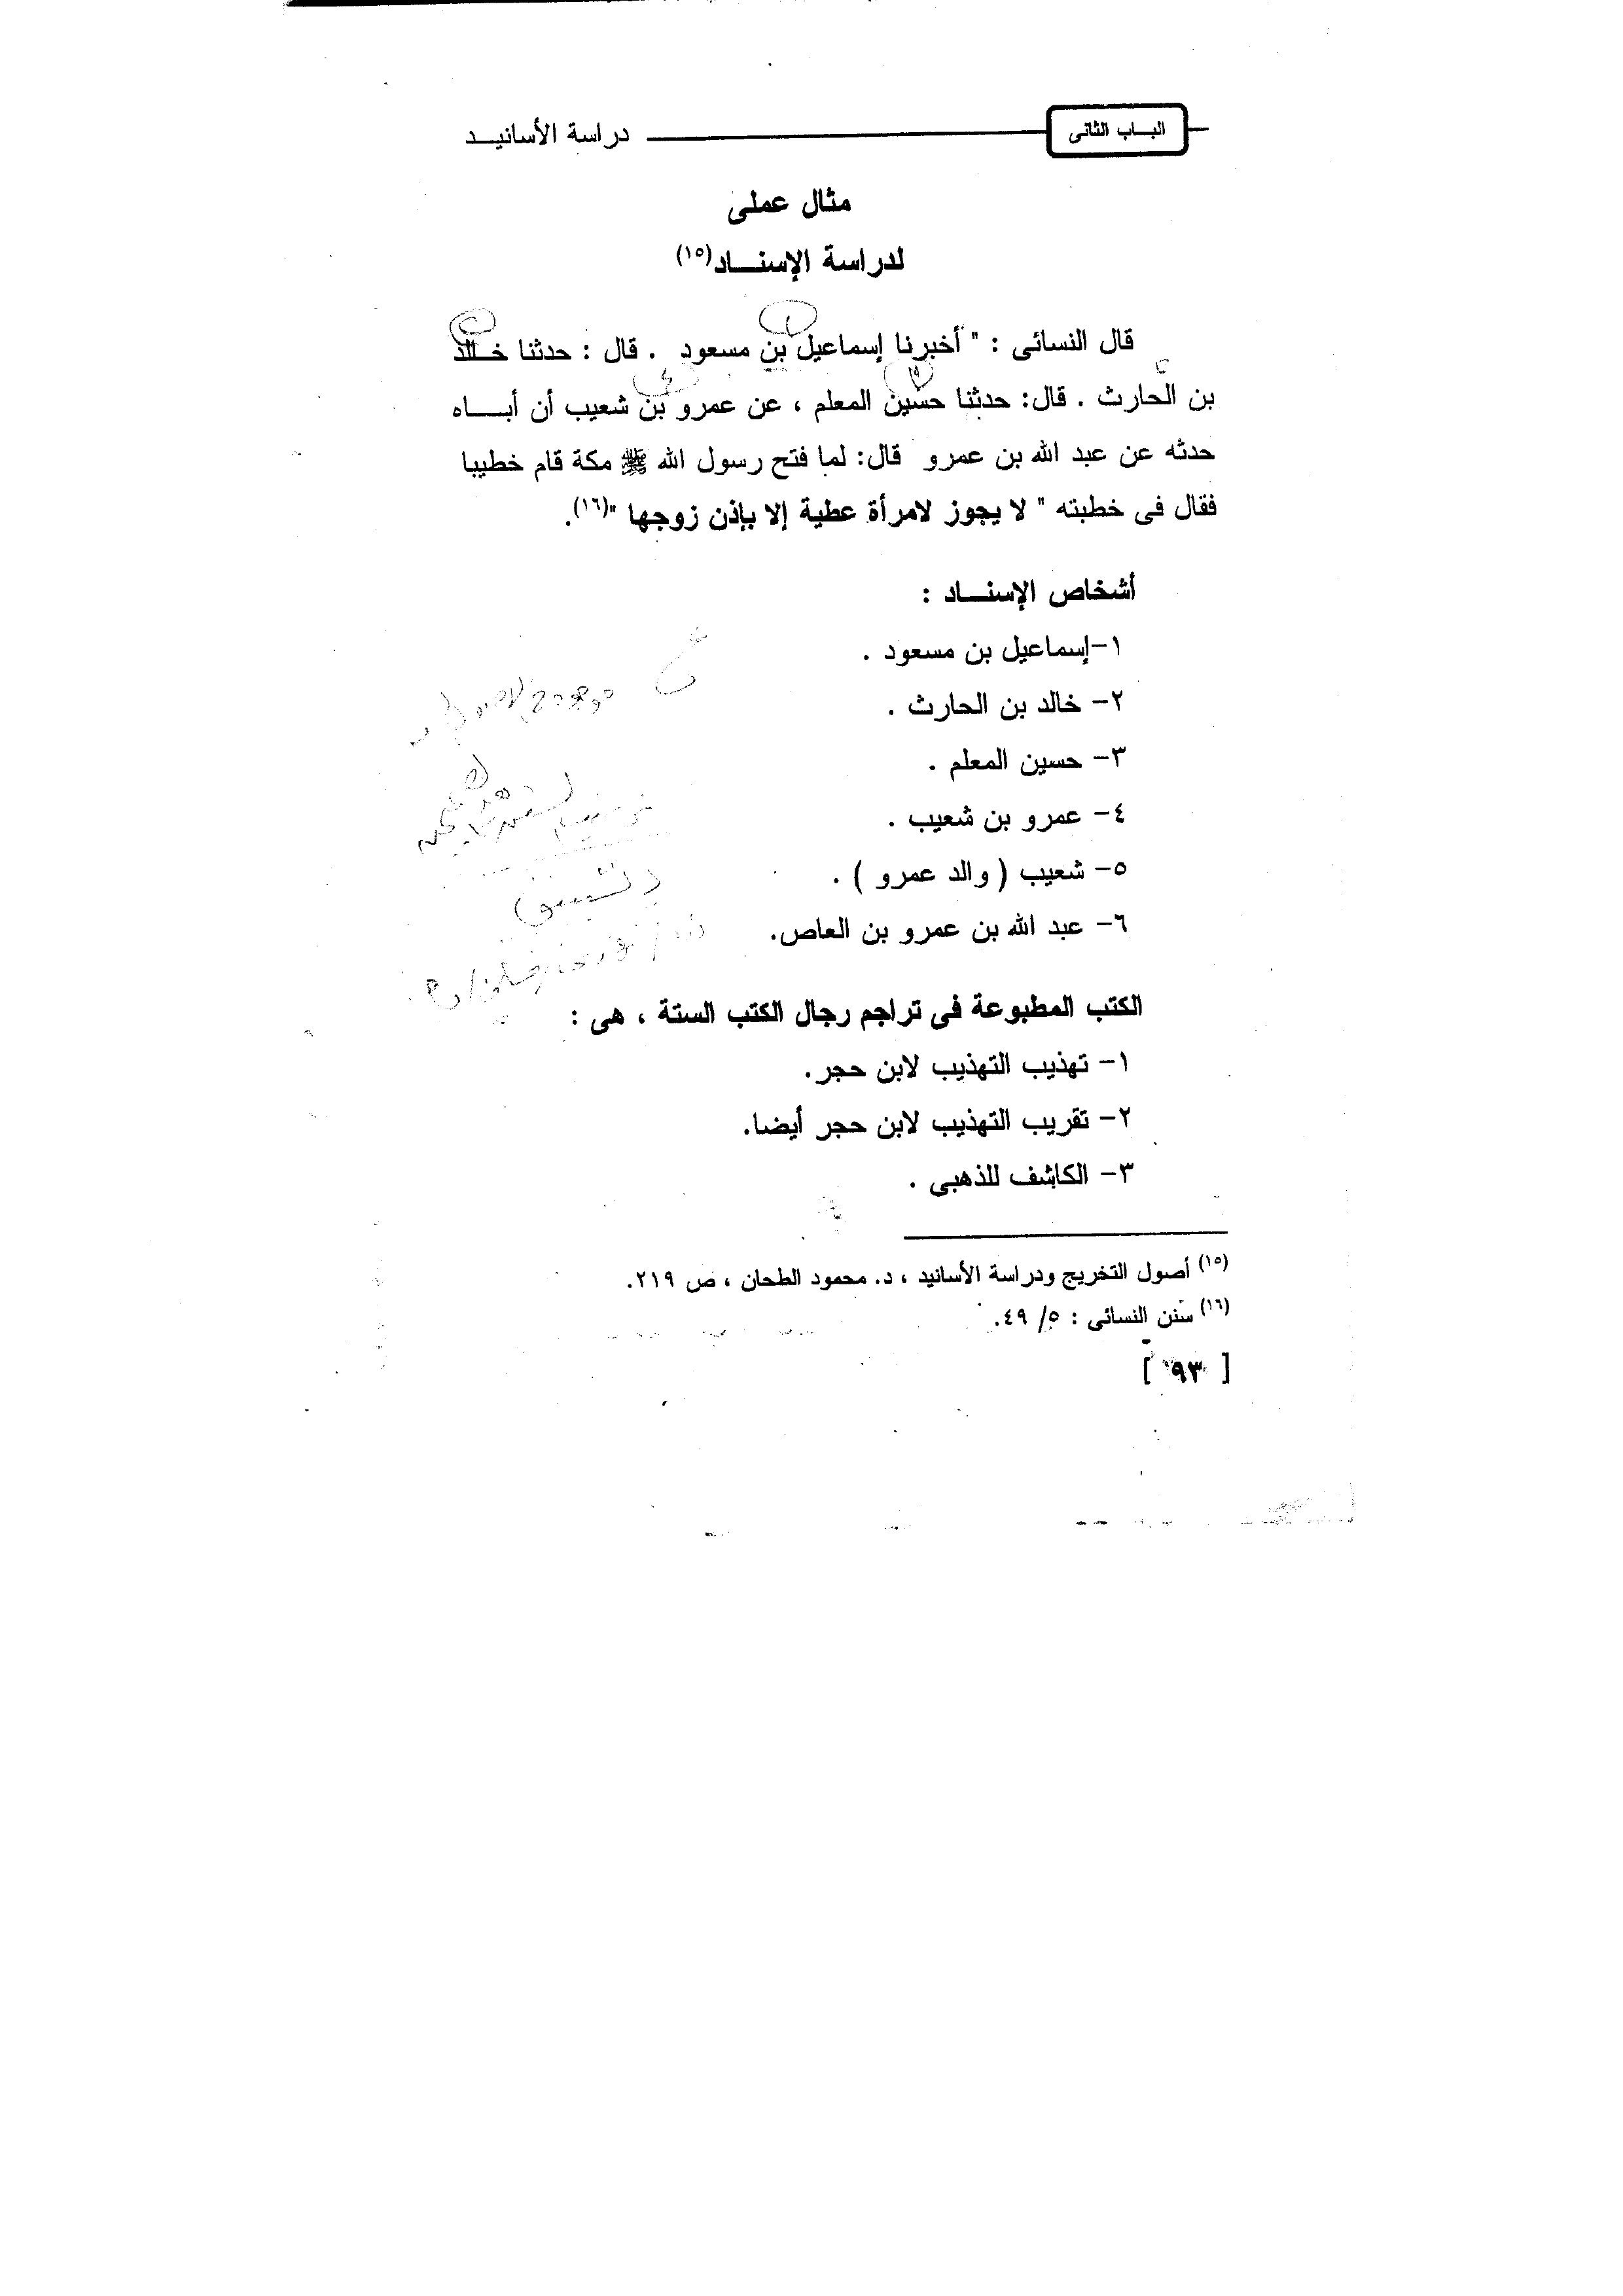 الباب الثانى
دراسة الأسانيد
مثال عملى
لدراسة الإسناد(١٥)
قال النسائى : " أخبرنا إسماعيل بن مسعود . قال : حدثنا خالد
بن الحارث . قال: حدثنا حسين المعلم ، عن عمرو بن شعيب أن أباه
حدثه عن عبد الله بن عمرو قال: لما فتح رسول الله ﷺ مكة قام خطيبا
فقال فى خطبته " لا يجوز لامرأة عطية إلا بإذن زوجها "(١٦).
أشخاص الإسناد :
١-إسماعيل بن مسعود .
٢- خالد بن الحارث .
٣- حسين المعلم .
٤- عمرو بن شعيب .
٥- شعيب ( والد عمرو ) .
٦- عبد الله بن عمرو بن العاص.
الكتب المطبوعة فى تراجم رجال الكتب الستة ، هى :
١- تهذيب التهذيب لابن حجر.
٢- تقريب التهذيب لابن حجر أيضا.
٣- الكاشف للذهبى .
(١٥) أصول التخريج ودراسة الأسانيد ، د. محمود الطحان ، ص ٢١٩.
(١٦) سنن النسائى : ٥/ ٤٩.
[ ٩٣ ]